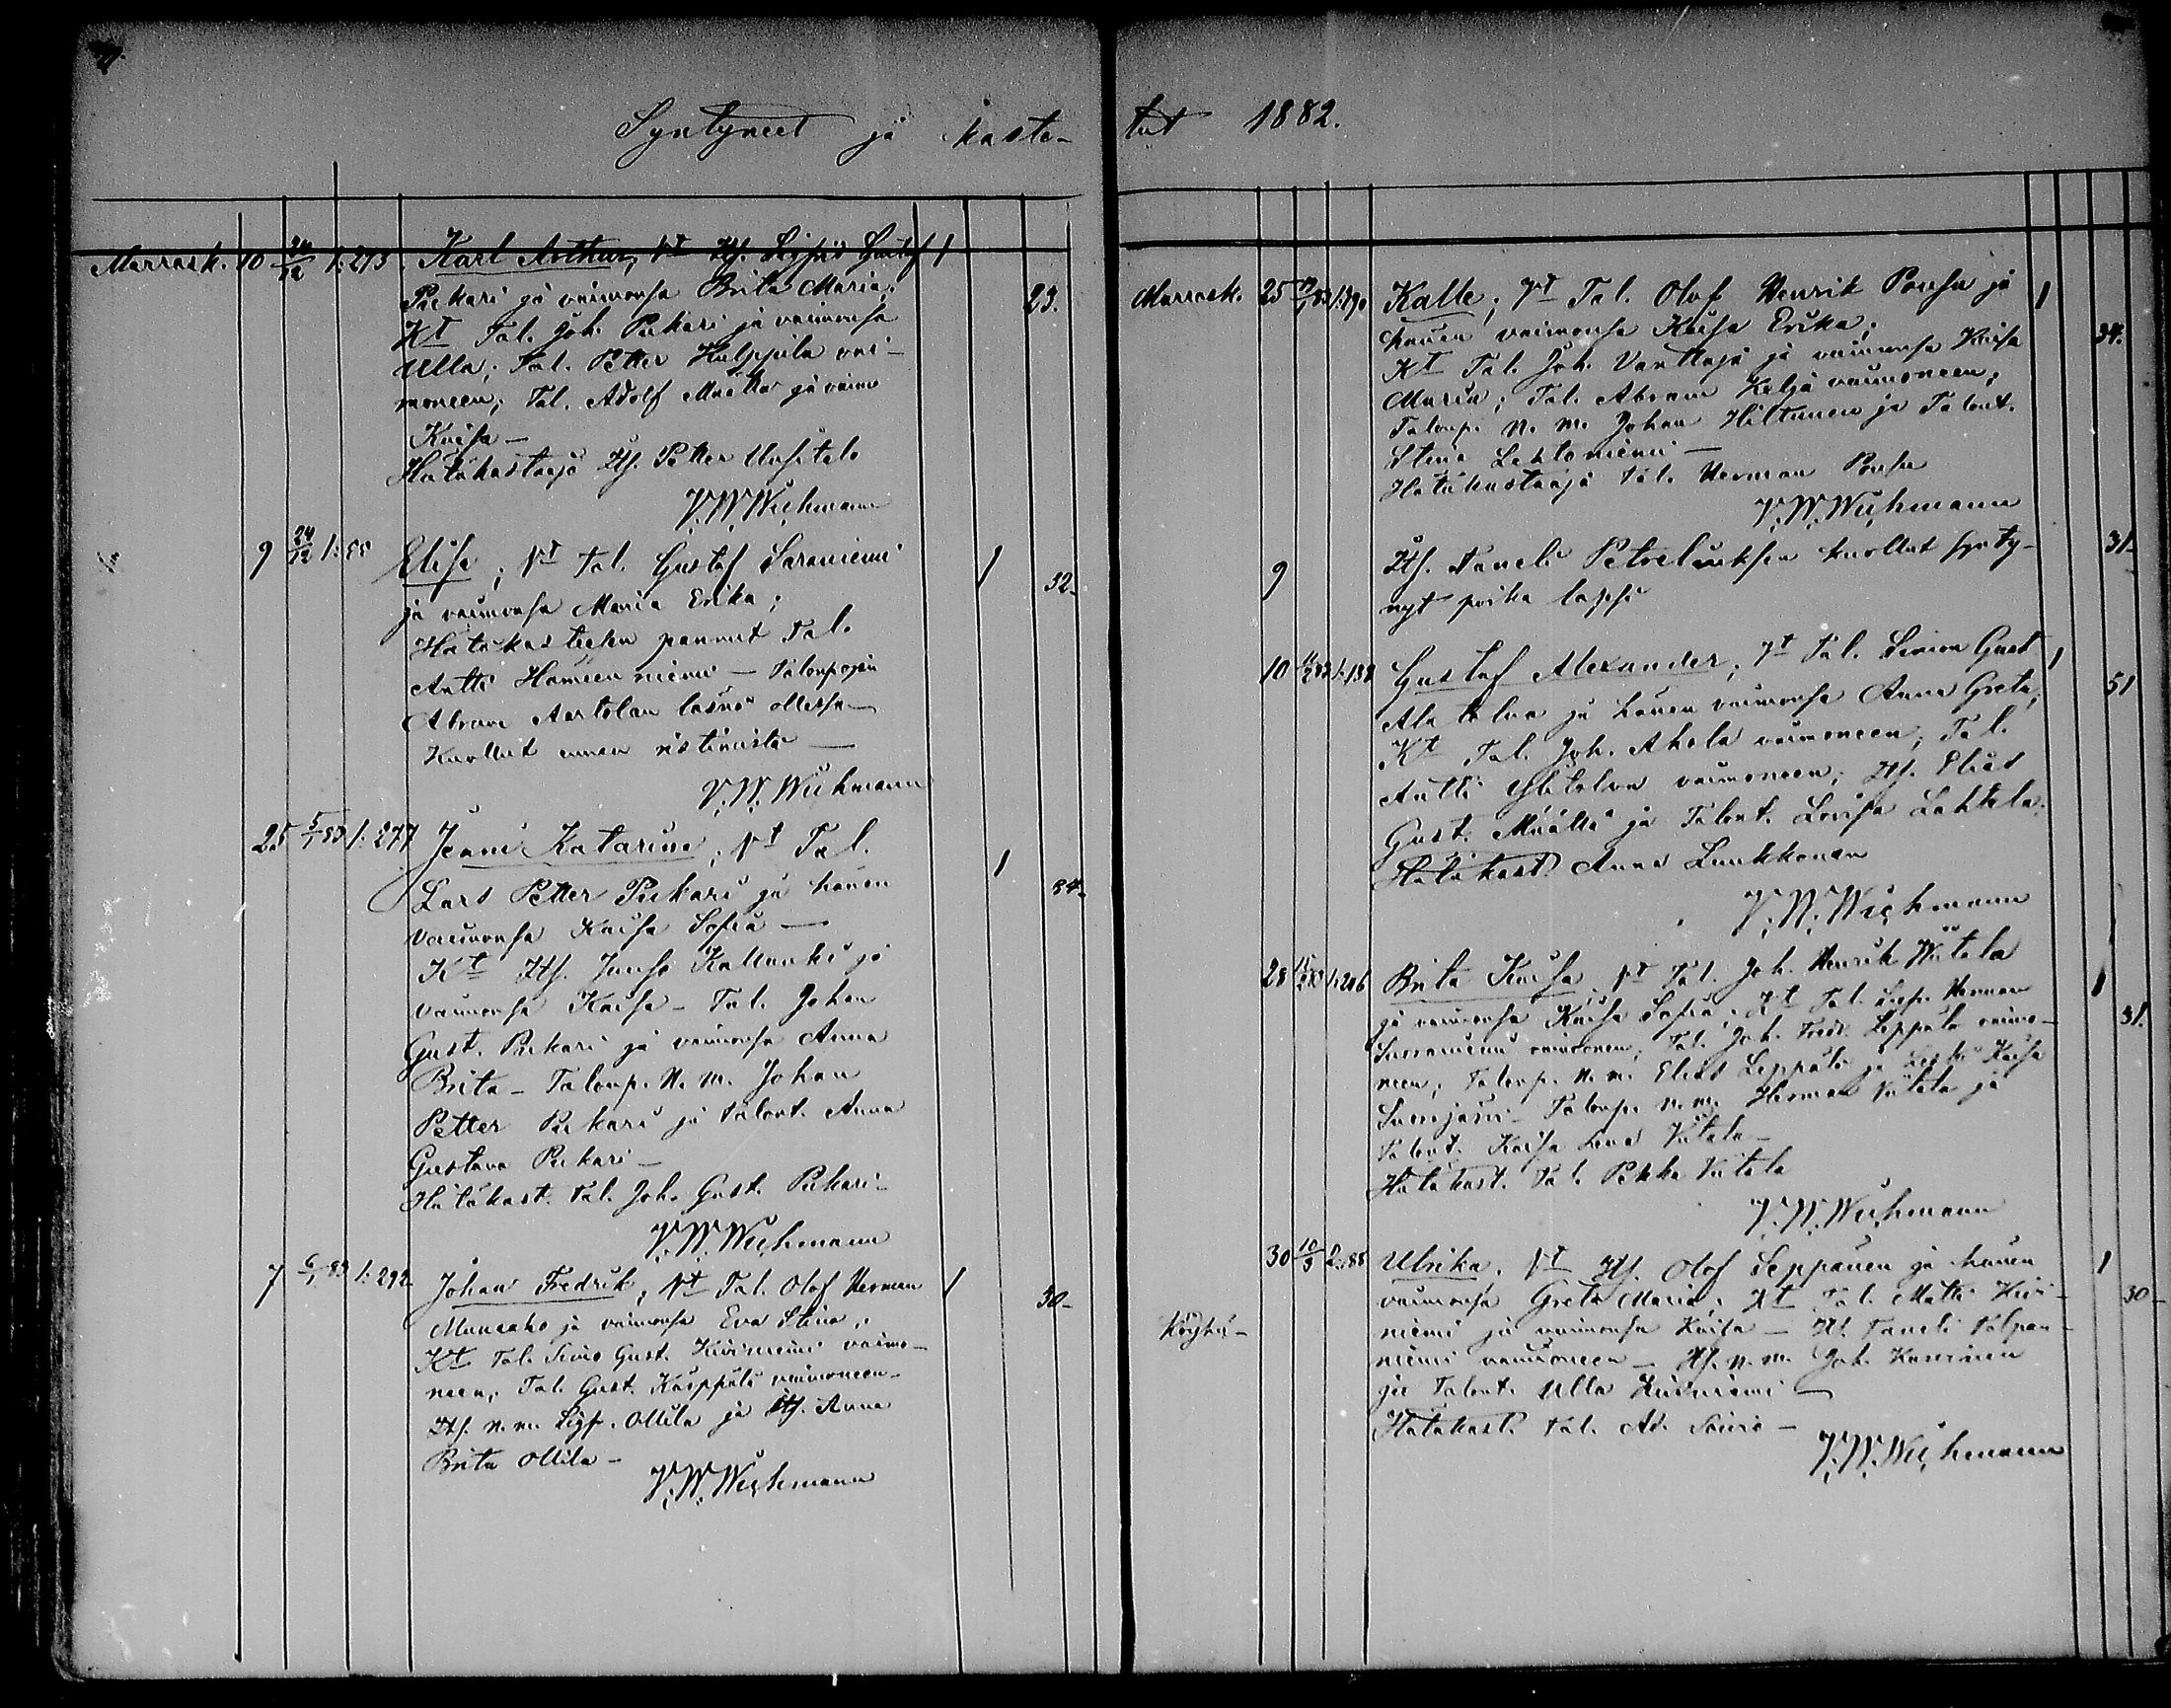 Syntyneet ja kaste- tut 1882.
Marrask. 10 24/12 1:273 Karl Arthur; Vt Its. Sigfrid Gustaf 1
Pukari ja vaimonsa Brita Maria; 23.
Kt Tal. Joh. Pukari ja vaimonsa
Ulla; Tal. Petter Kulppila vai-
moneen; Tal. Adolf Määttä ja vaimo
Kaisa –
Hätäkastaja Its. Petter Uusitalo
V. W. Wichmann
9 24/12 1:88 Elise; Vt Tal. Gustaf Saraniemi 1
ja vaimonsa Maria Erika; 32.
Hätäkasteesen pannut Tal.
Antti Hämeenniemi – Talonpojan
Abram Aartolan läsnä ollessa –
Kuollut ennen ristimistä –
V. W. Wichmann
25 5/1 83 1:277 Jenni Katarina; Vt Tal. 1
Lars Petter Pukari ja hänen 34.
vaimonsa Kaisa Sofia –
Kt Its. Junso Kallunki ja
vaimonsa Kaisa – Tal. Johan
Gust. Pukari ja vaimonsa Anna
Brita – Talonp. N. m. Johan
Petter Pukari ja Talont. Anna
Gustava Pukari –
Hätäkast. Tal. Joh. Gust. Pukari –
V. W. Wichmann
7 6/1 83 1:292 Johan Fredrik; Vt Tal. Olof Herman 1
Mursaho ja vaimonsa Eva Stina; 30.
Kt Tal. Simo Gust. Kiviniemi vaimo-
neen; Tal. Gust. Karppala vaimoneen –
Its. n. m. Sigf. Ollila ja Its. Anna
Brita Ollila –
V. W. Wichmann
Marrask. 25 1:290 Kalle; Vt Tal. Olof Henrik Pousu ja 1
hänen vaimonsa Kaisa Erika; 34.
Kt Tal. Joh. Vanttaja ja vaimonsa Kaisa
Maria; Tal. Abram Kelja vaimoneen;
Talonp. N. m. Johan Hiltunen ja Talont.
Stina Lehtoniemi –
Hätäkastaja Tal. Herman Pousu
V. W. Wichmann
9 Its. Taneli Petreliuksen kuollut synty- 31.
nyt poika lapsi
10 1:138 Gustaf Alexander; Vt Tal. Simon Gust. 1
Alatalo ja hänen vaimonsa Anna Greta; 51
Kt Tal. Joh. Ahola vaimoneen; Tal.
Antti Ylitalon vaimoneen; Its. Elias
Gust. Määttä ja Talont. Lovisa Lahtela.
Hätäkast. Anna Luukkonen
V. W. Wichmann
28 1:206 Brita Kaisa Vt Tal. Joh. Henrik Viitala 1
ja vaimonsa Kaisa Sofia; Kt Tal. Herman 31.
Suoraniemi vaimoneen; Tal. Joh. Fredr. Leppälä vaimo-
neen; Talonp. n. m. Elias Leppälä ja Kaisa
Suorajärvi – Talonp. n. m. Herman Viitala ja
Talont. Kaisa Lena Viitala –
Hätäkast. Tal. Pekka Viitala
V. W. Wichmann
30 10/3 2:88 Ulrika, Vt Its. Olof Seppänen ja hänen 1
vaimonsa Greta Maria; Kt Tal. Matti Kivi- 30 –
Köyhä – niemi ja vaimonsa Kaisa – Its. Taneli
niemi vaimoneen – Its. n. m. Joh.
ja Talont. Ulla Kiviniemi –
Hätäkast. Tal. Ad. –
V. W. Wichmann